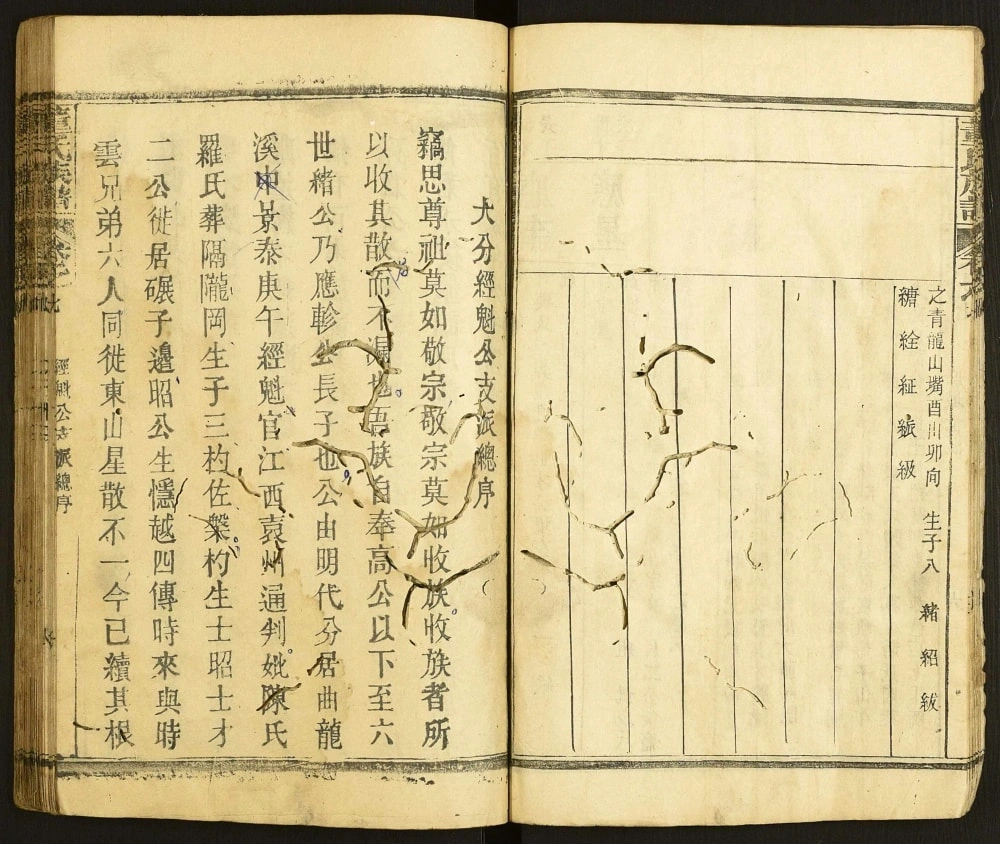 之青龍山嘴酉山卯向　生子八　緒紹紱
纘絟紝紁級
大分經魁公支派總序
竊思尊祖莫如敬宗敬宗莫如收族收族者所
以收其散而不漏也吾族自奉高公以下至六
世緒公乃應軫公長子也公由明代分居曲龍
溪中景泰庚午經魁官江西袁州通判妣陳氏
羅氏葬隔隴岡生子三杓佐槃杓生士昭士才
二公徙居碾子邊昭公生懚越四傳時來與時
雲兄弟六人同徙東山星散不一今已續其根
經魁公支派總序
童氏族譜